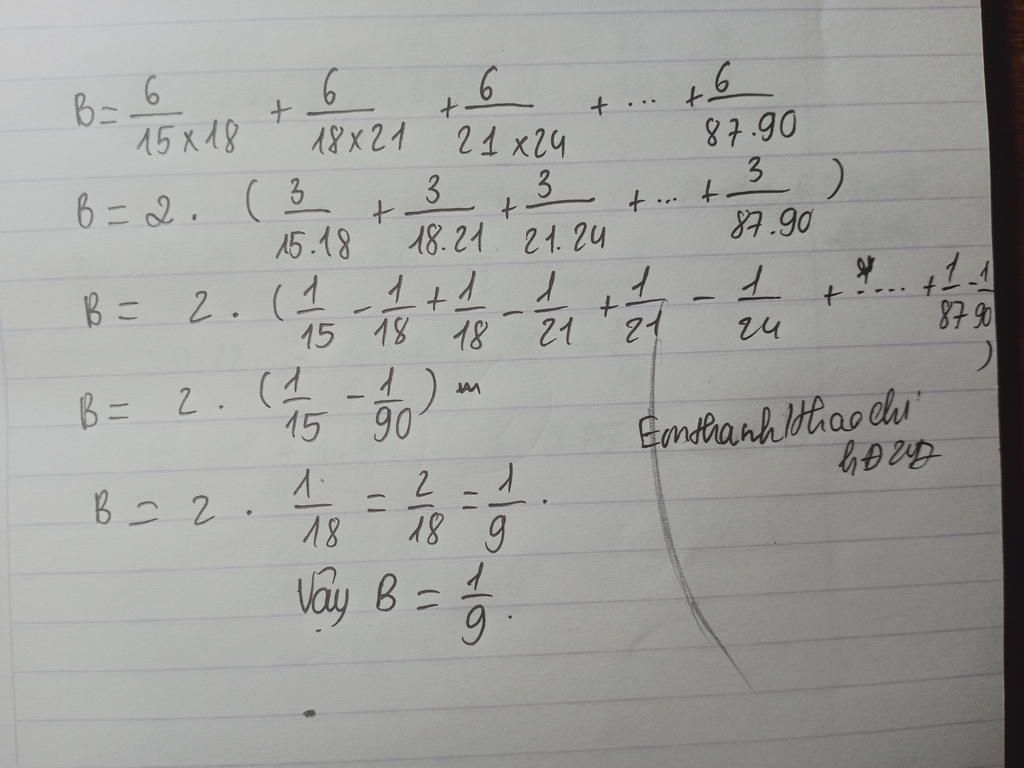 B = 6/15×18 + 6/18×21 + 6/21×24 + ... + 6/87.90
B = 2 . ( 3/15.18 + 3/18.21 + 3/21.24 + ... + 3/87.90 )
B = 2 . ( 1/15 - 1/18 + 1/18 - 1/21 + 1/21 - 1/24 + .... + 1/87 - 1/90 )
B = 2 . ( 1/15 - 1/90 )
B = 2 . 1/18 = 2/18 = 1/9 .
Vậy B = 1/9 .